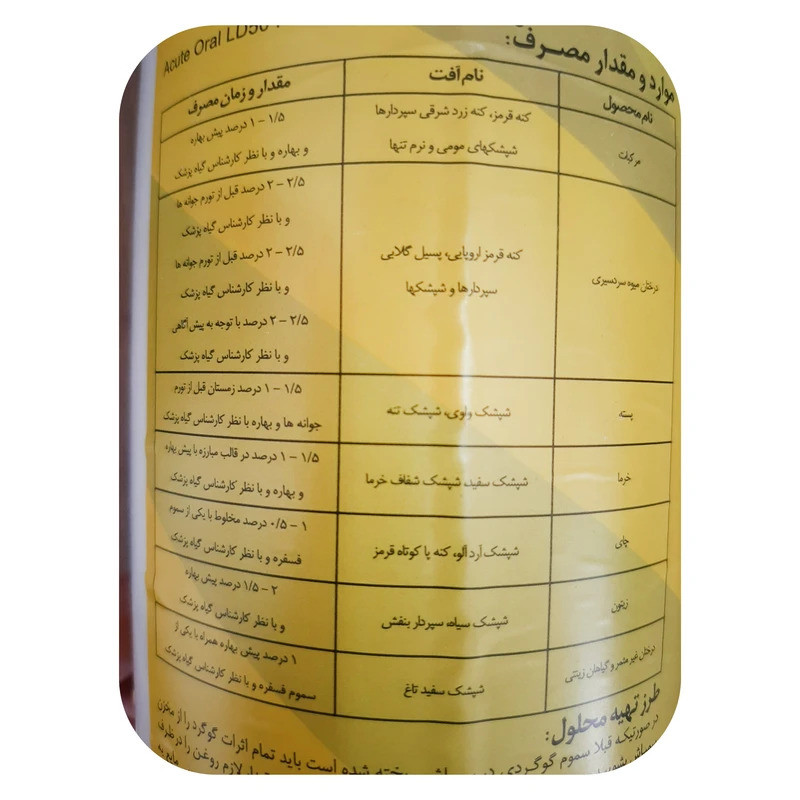 Acute Oral LD50
موارد و مقدار مصرف:
نام محصول
نام آفت
مقدار و زمان مصرف
مرکبات
کنه قرمز، کنه زرد شرقی سپردارها
شپشکهای مومی و نرم تنها
۱/۵ – ۱ درصد پیش بهاره
و بهاره و با نظر کارشناس گیاه پزشک
درختان میوه سردسیری
کنه قرمز اروپایی، پسیل گلابی
سپردارها و شپشکها
۲/۵ – ۲ درصد قبل از تورم جوانه ها
و با نظر کارشناس گیاه پزشک
۲/۵ – ۲ درصد قبل از تورم جوانه ها
و با نظر کارشناس گیاه پزشک
۲/۵ – ۲ درصد با توجه به پیش آگاهی
و با نظر کارشناس گیاه پزشک
پسته
شپشک واوی، شپشک تنه
۱/۵ – ۱ درصد زمستان قبل از تورم
جوانه ها و بهاره با نظر کارشناس گیاه پزشک
خرما
شپشک سفید، شپشک شفاف خرما
۱/۵ – ۱ درصد در قالب مبارزه با پیش بهاره
و بهاره و با نظر کارشناس گیاه پزشک
چای
شپشک آرد آلو، کنه پا کوتاه قرمز
۱ – ۰/۵ درصد مخلوط با یکی از سموم
فسفره و با نظر کارشناس گیاه پزشک
زیتون
شپشک سیاه، سپردار بنفش
۲ – ۱/۵ درصد پیش بهاره
و با نظر کارشناس گیاه پزشک
درختان غیر مثمر و گیاهان زینتی
شپشک سفید تاغ
۱ درصد پیش بهاره همراه با یکی از
سموم فسفره و با نظر کارشناس گیاه پزشک
طرز تهیه محلول:
در صورتیکه قبلا سموم گوگردی در ریخته شده است باید تمام اثرات گوگرد را از مخزن
لازم روغن را در ظرف